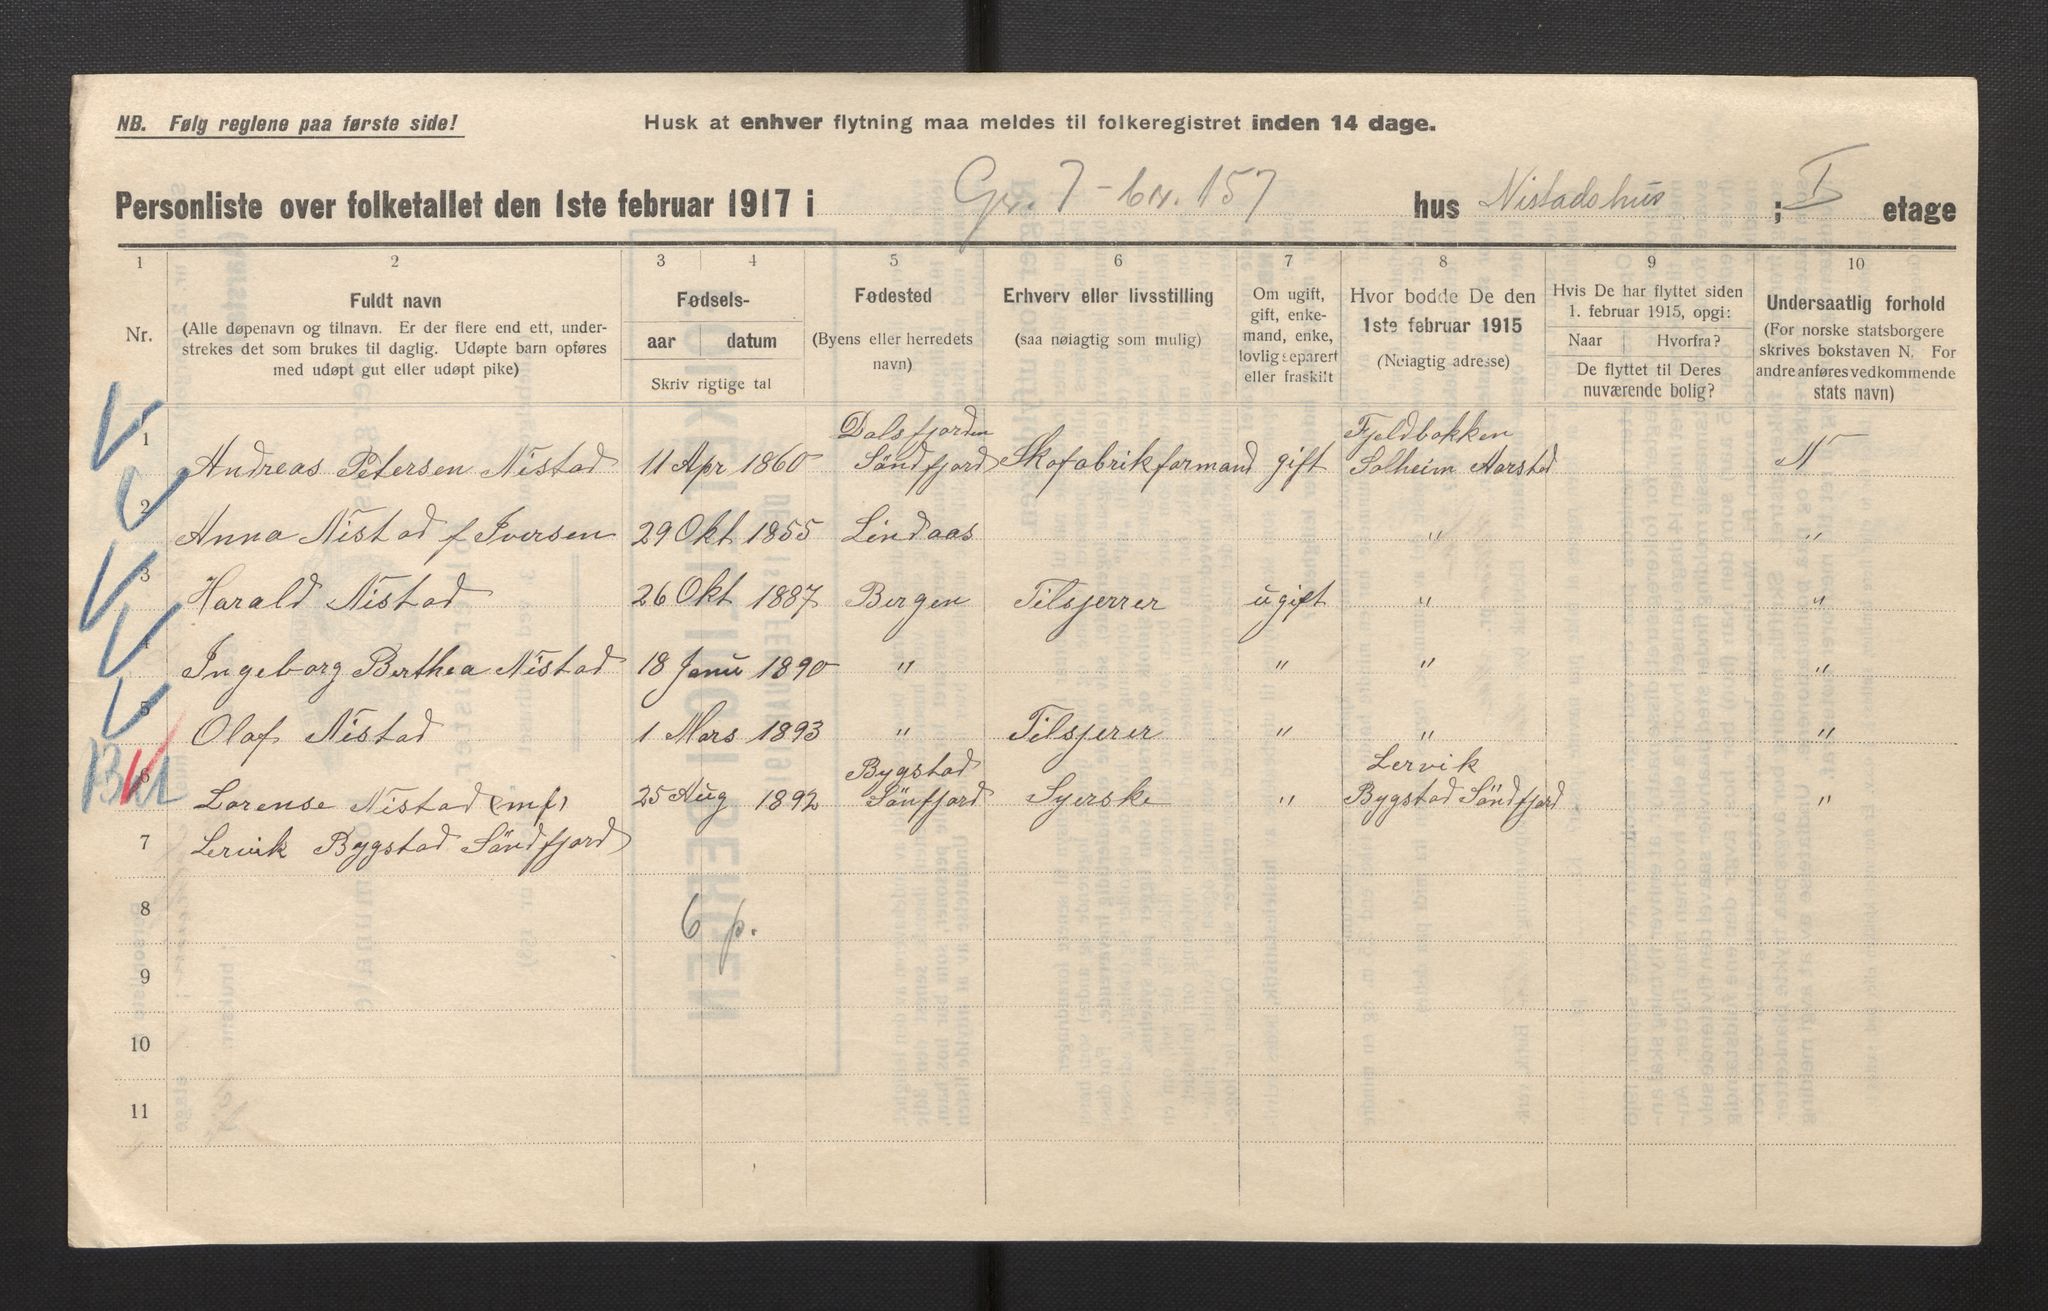 NB. Følg reglene paa første side!
Husk at enhver flytning maa meldes til folkeregistret inden 14 dage.
Personliste over folketallet den 1ste februar 1917 i Gr. 7 - br. 157 hus Nistadshus ; I etage
1 2 3 4 5 6 7 8 9 10
Nr.
Fuldt navn
(Alle døpenavn og tilnavn. Er der flere end ett, under-
strekes det som brukes til daglig. Udøpte barn opføres
med udøpt gut eller udøpt pike)
Fødsels-
aar datum
Skriv rigtige tal
Fødested
(Byens eller herredets
navn)
Erhverv eller livsstilling
(saa nøiagtig som mulig)
Om ugift,
gift, enke-
mand, enke,
lovlig separert
eller fraskilt
Hvor bodde De den
1ste februar 1915
(Nøiagtig adresse)
Hvis De har flyttet siden
1. februar 1915, opgi:
Naar Hvorfra?
De flyttet til Deres
nuværende bolig?
Undersaatlig forhold
(For norske statsborgere
skrives bokstaven N. For
andre anføres vedkommende
stats navn)
Dalsfjorden Fjeldbakken
1 Andreas Petersen Nistad 11 Apr 1860 Söndfjord Skofabrikformand gift Solheim Aarstad N
2 Anna Nistad f Iversen 29 Okt 1855 Lindaas " "
3 Harald Nistad 26 Okt 1887 Bergen Tilsjerrer ugift " "
4 Ingeborg Berthea Nistad 18 Janu 1890 " " " "
5 Olaf Nistad 1 Mars 1893 " Tilsjerer " " "
Bygstad Lervik
6 Lorense Nistad (mf) 25 Aug 1892 Sönfjord Syerske " Bygstad Söndfjord "
7 Lervik Bygstad Söndfjord
8 6 p.
9
10
11